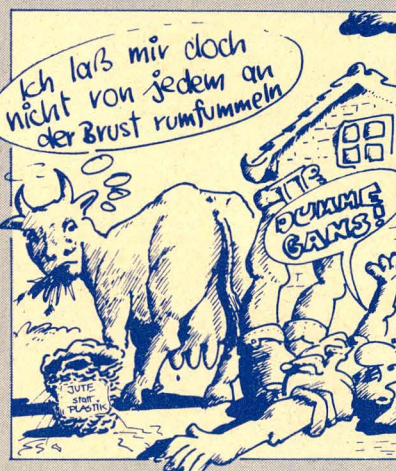 Ich laß mir doch
nicht von jedem an
der Brust rumfummeln
DUMME
GANS!
JUTE
statt
PLASTIK